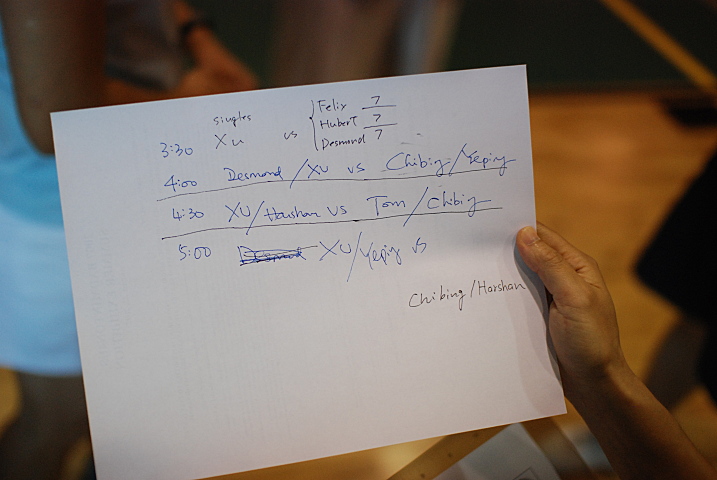 singles
3:30 Xu vs { Felix 7
Hubert 7
Desmond 7
4:00 Desmond / XU vs Chibing / Yepiy
4:30 XU / Harshan vs Tom / Chibing
5:00 XU / Yepiy vs
Chibing / Harshan